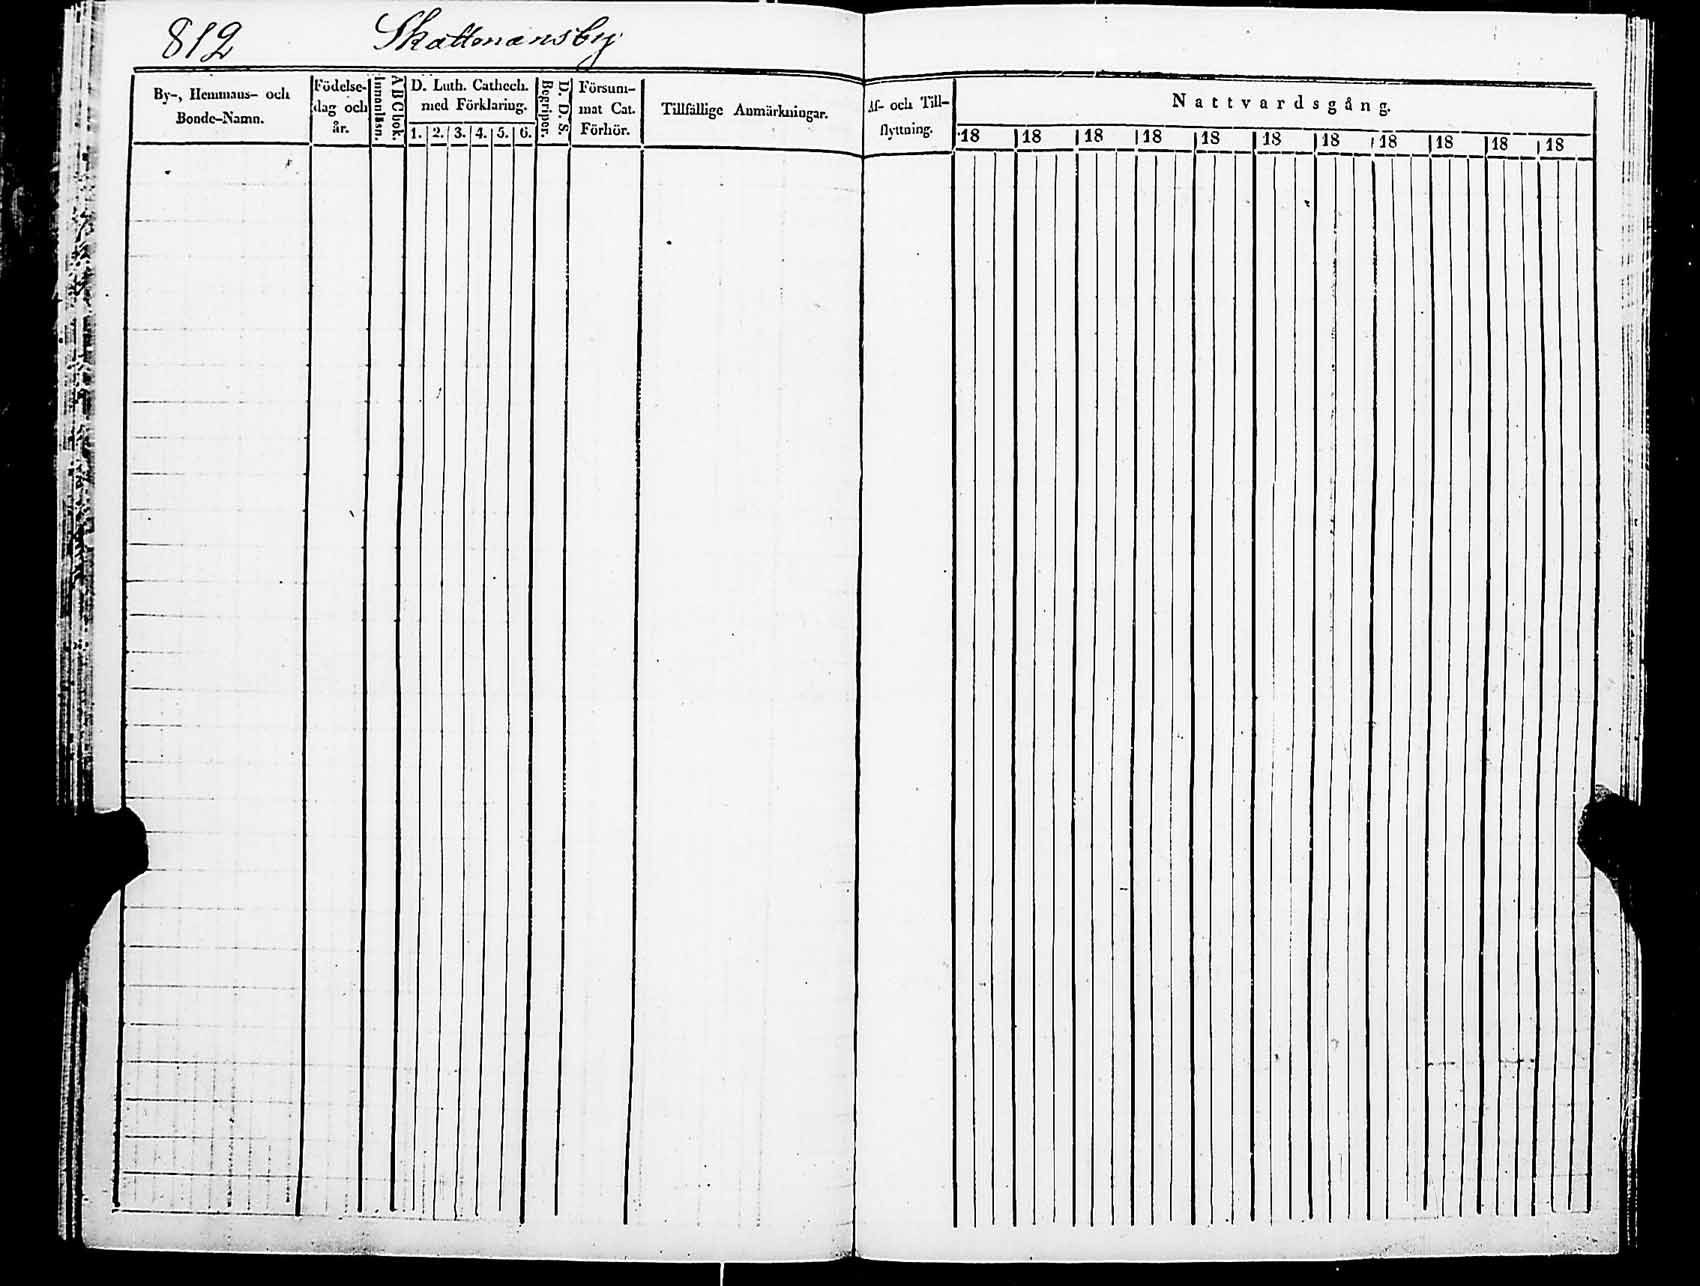 812 Skattmansby
By-, Hemmans- och
Bonde-Namn.
Födelse-
dag och
år.
Innanläsn.
ABCbok.
D. Luth. Cathech.
med Förklaring.
1. 2. 3. 4. 5. 6.
Begriper.
D. D. S.
Försum-
mat Cat.
Förhör.
Tillfällige Anmärkningar.
Af- och Till-
flyttning.
Nattvardsgång.
18 18 18 18 18 18 18 18 18 18 18